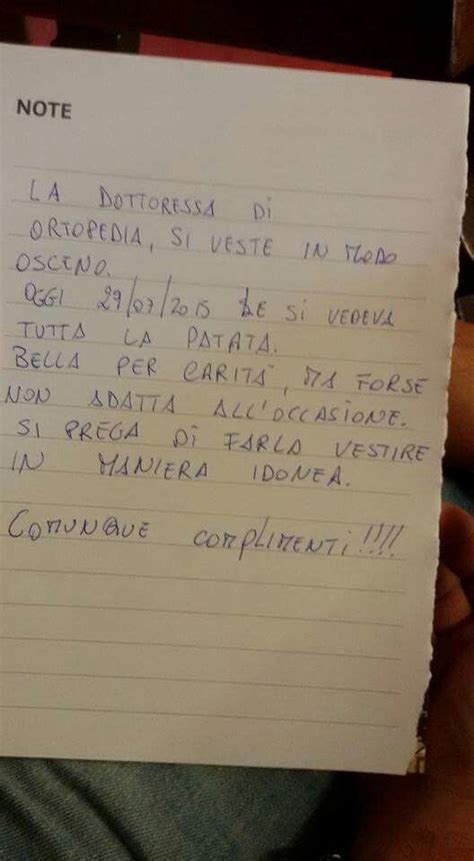 NOTE
LA DOTTORESSA Di
ORTOPEDIA, SI VESTE IN MODO
OSCENO.
OGGI 29/07/2015 LE SI VEDEVA
TUTTA LA PATATA.
BELLA PER CARITÀ, MA FORSE
NON ADATTA ALL'OCCASIONE.
SI PREGA Di FARLA VESTIRE
IN MANIERA IDONEA.
COMUNQUE COMPLIMENTi!!!!